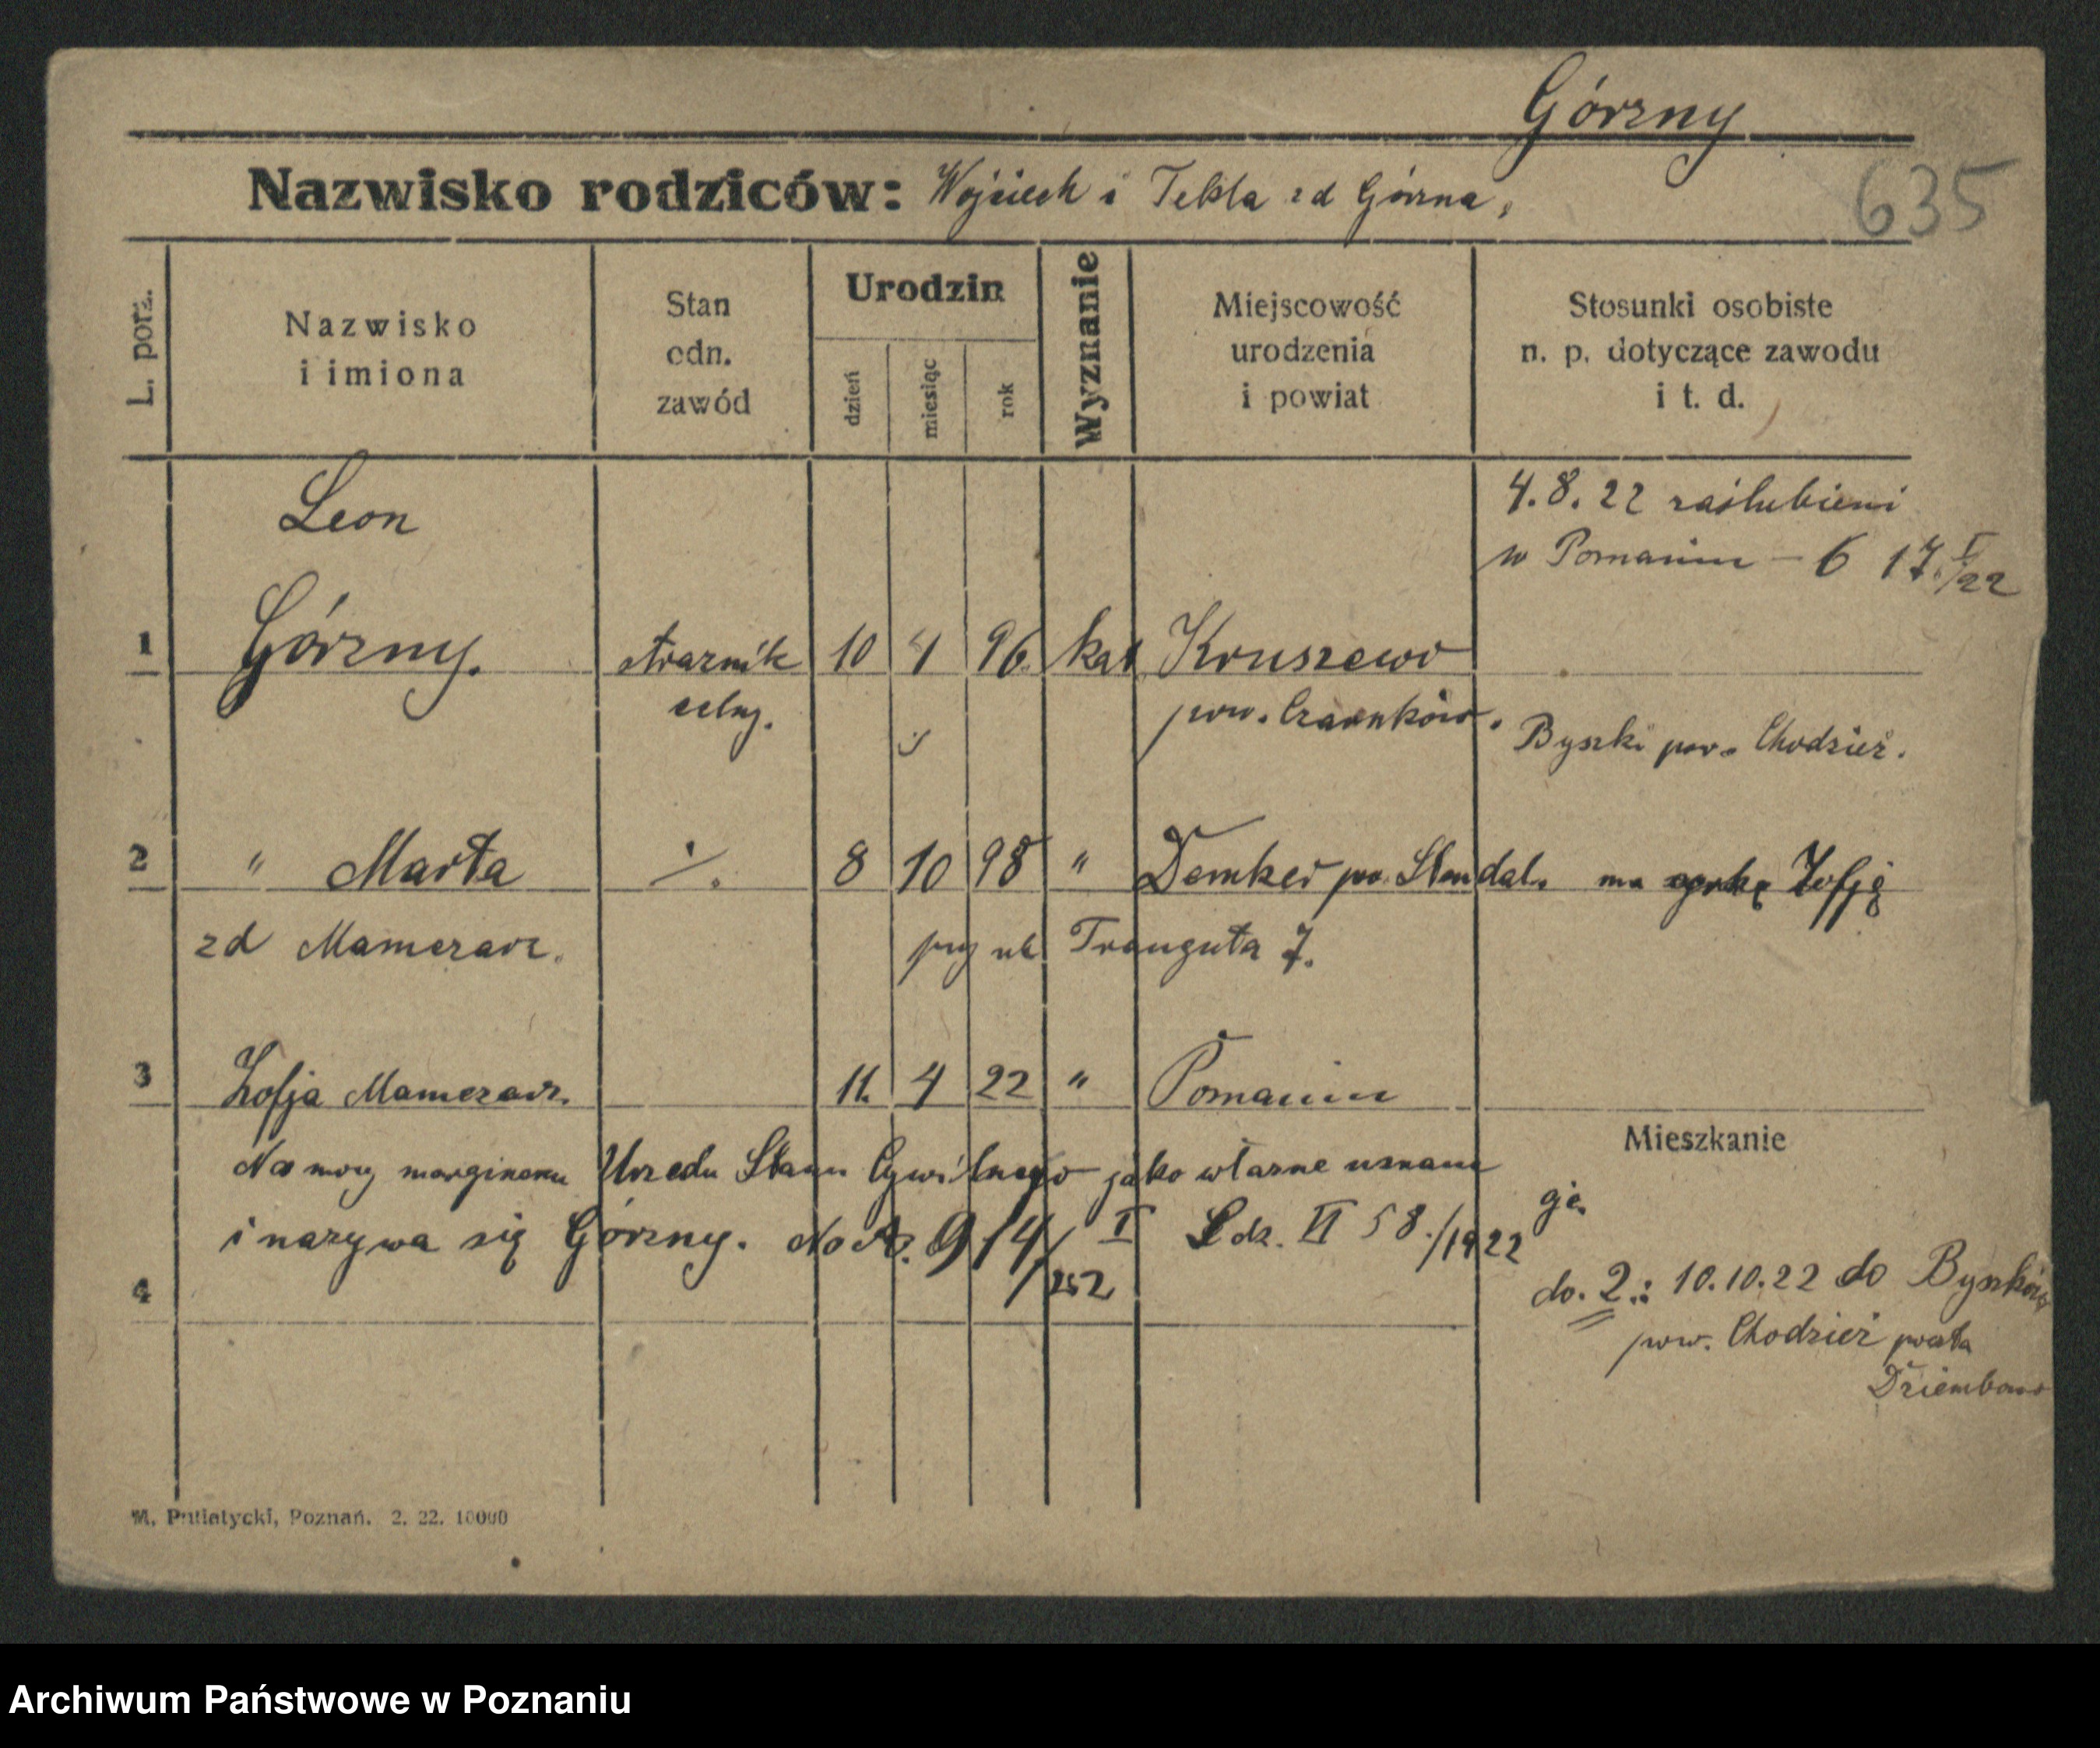 Górzny
635
Nazwisko rodziców: Wojciech i Tekla zd Górzna,
L. porz.
Nazwisko
i imiona
Stan
odn.
zawód
Urodzin
dzień
miesiąc
rok
Wyznanie
Miejscowość
urodzenia
i powiat
Stosunki osobiste
n. p. dotyczące zawodu
i t. d.
4.8.22 zaślubieni
w Poznaniu – 6 17. I/22
Leon
1 Górzny. strażnik 10 4 96 kat Kruszewo
celny. pow. Czarnków.
Byszki pow. Chodzież.
2 " Marta ./. 8 10 98 " Demker pow. Stendal. ma córkę Zofję
zd Mamezarz. przy ul Trauguta 7.
3 Zofja Mamezarz. 11. 4 22 " Poznaniu
Na mocy Urzędu Stanu Cywilnego jako własne uznane
i nazywa się Górzny. 914/252 I L dz. VI 58./1922
Mieszkanie
4
do. 2.: 10.10.22 do Byszków
pow. Chodzież poczta
Dziembowo
M. Putiatycki, Poznań. 2. 22. 10000
Archiwum Państwowe w Poznaniu